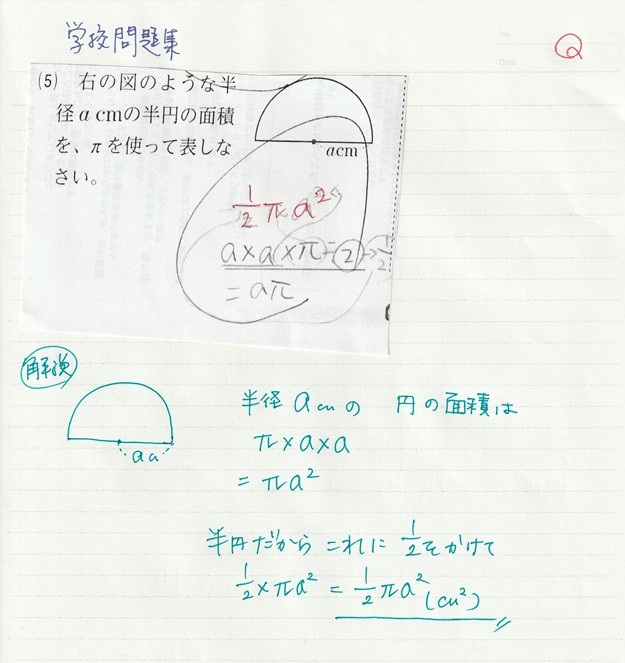 学校問題集
Q
(5) 右の図のような半
径a cmの半円の面積
を、πを使って表しな
さい。
acm
1/2 πa²
a×a×π÷2→1/2
=aπ
解説
半径 acmの 円の面積は
π×a×a
=πa²
半円だから これに 1/2をかけて
1/2×πa² = 1/2πa² (cm²)